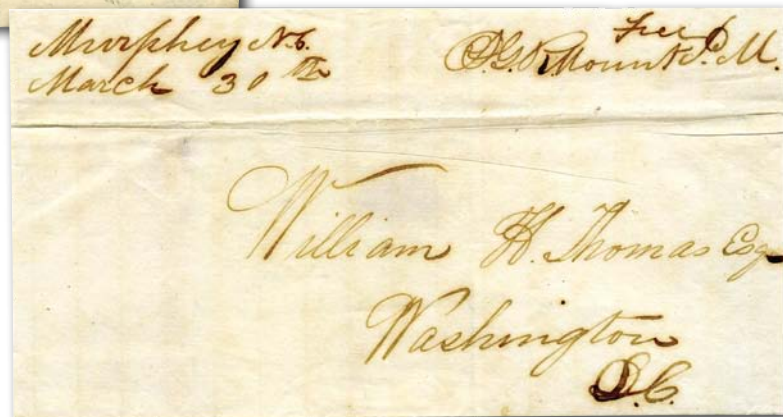 Murphey N.C.
March 30th
Free
Mount P. M.
William H. Thomas Esq
Washington
D.C.